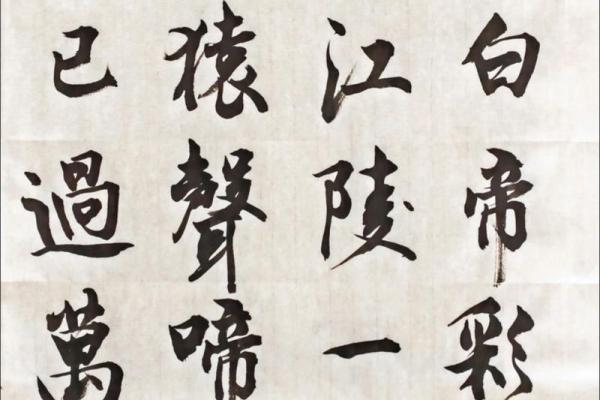 白帝彩
江陵一
猿聲啼
已過萬